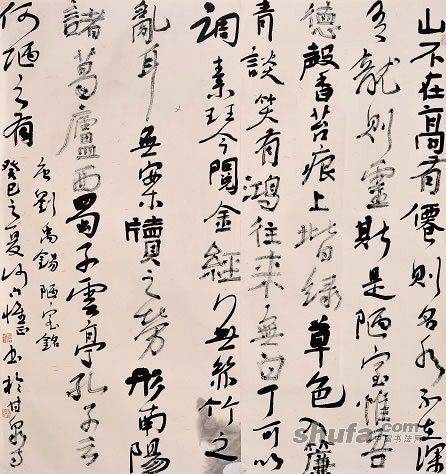 山不在高有僊則名水不在深
有龍則靈斯是陋室惟吾
德馨苔痕上堦綠草色入簾
青談笑有鴻往來無白丁可以
調素琴閱金經無絲竹之
亂耳無案牘之勞形南陽
諸葛廬西蜀子雲亭孔子云
何陋之有
唐劉禹錫陋室銘
癸巳之夏書於甘
shufa